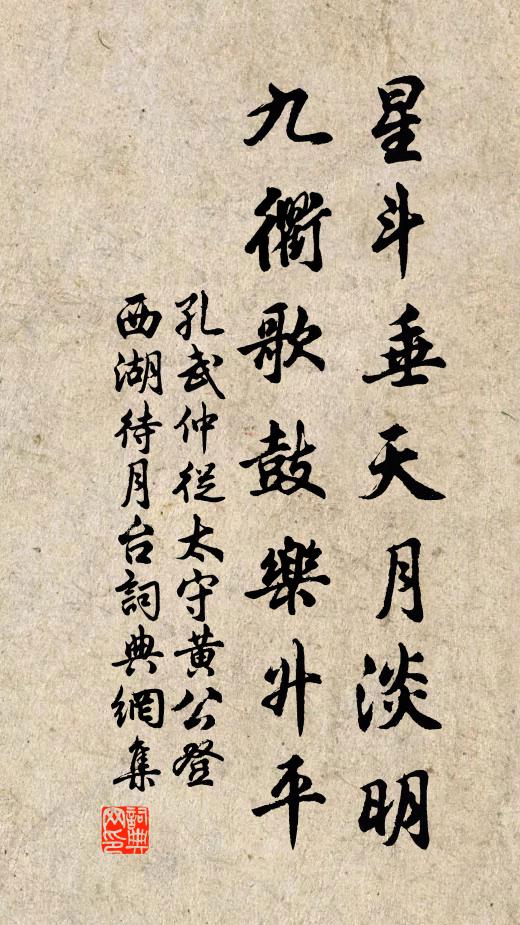 星斗垂天月淡明
九衢歌鼓樂升平
孔武仲從太守黄公登
西湖待月台詞典網集
詞典
网印